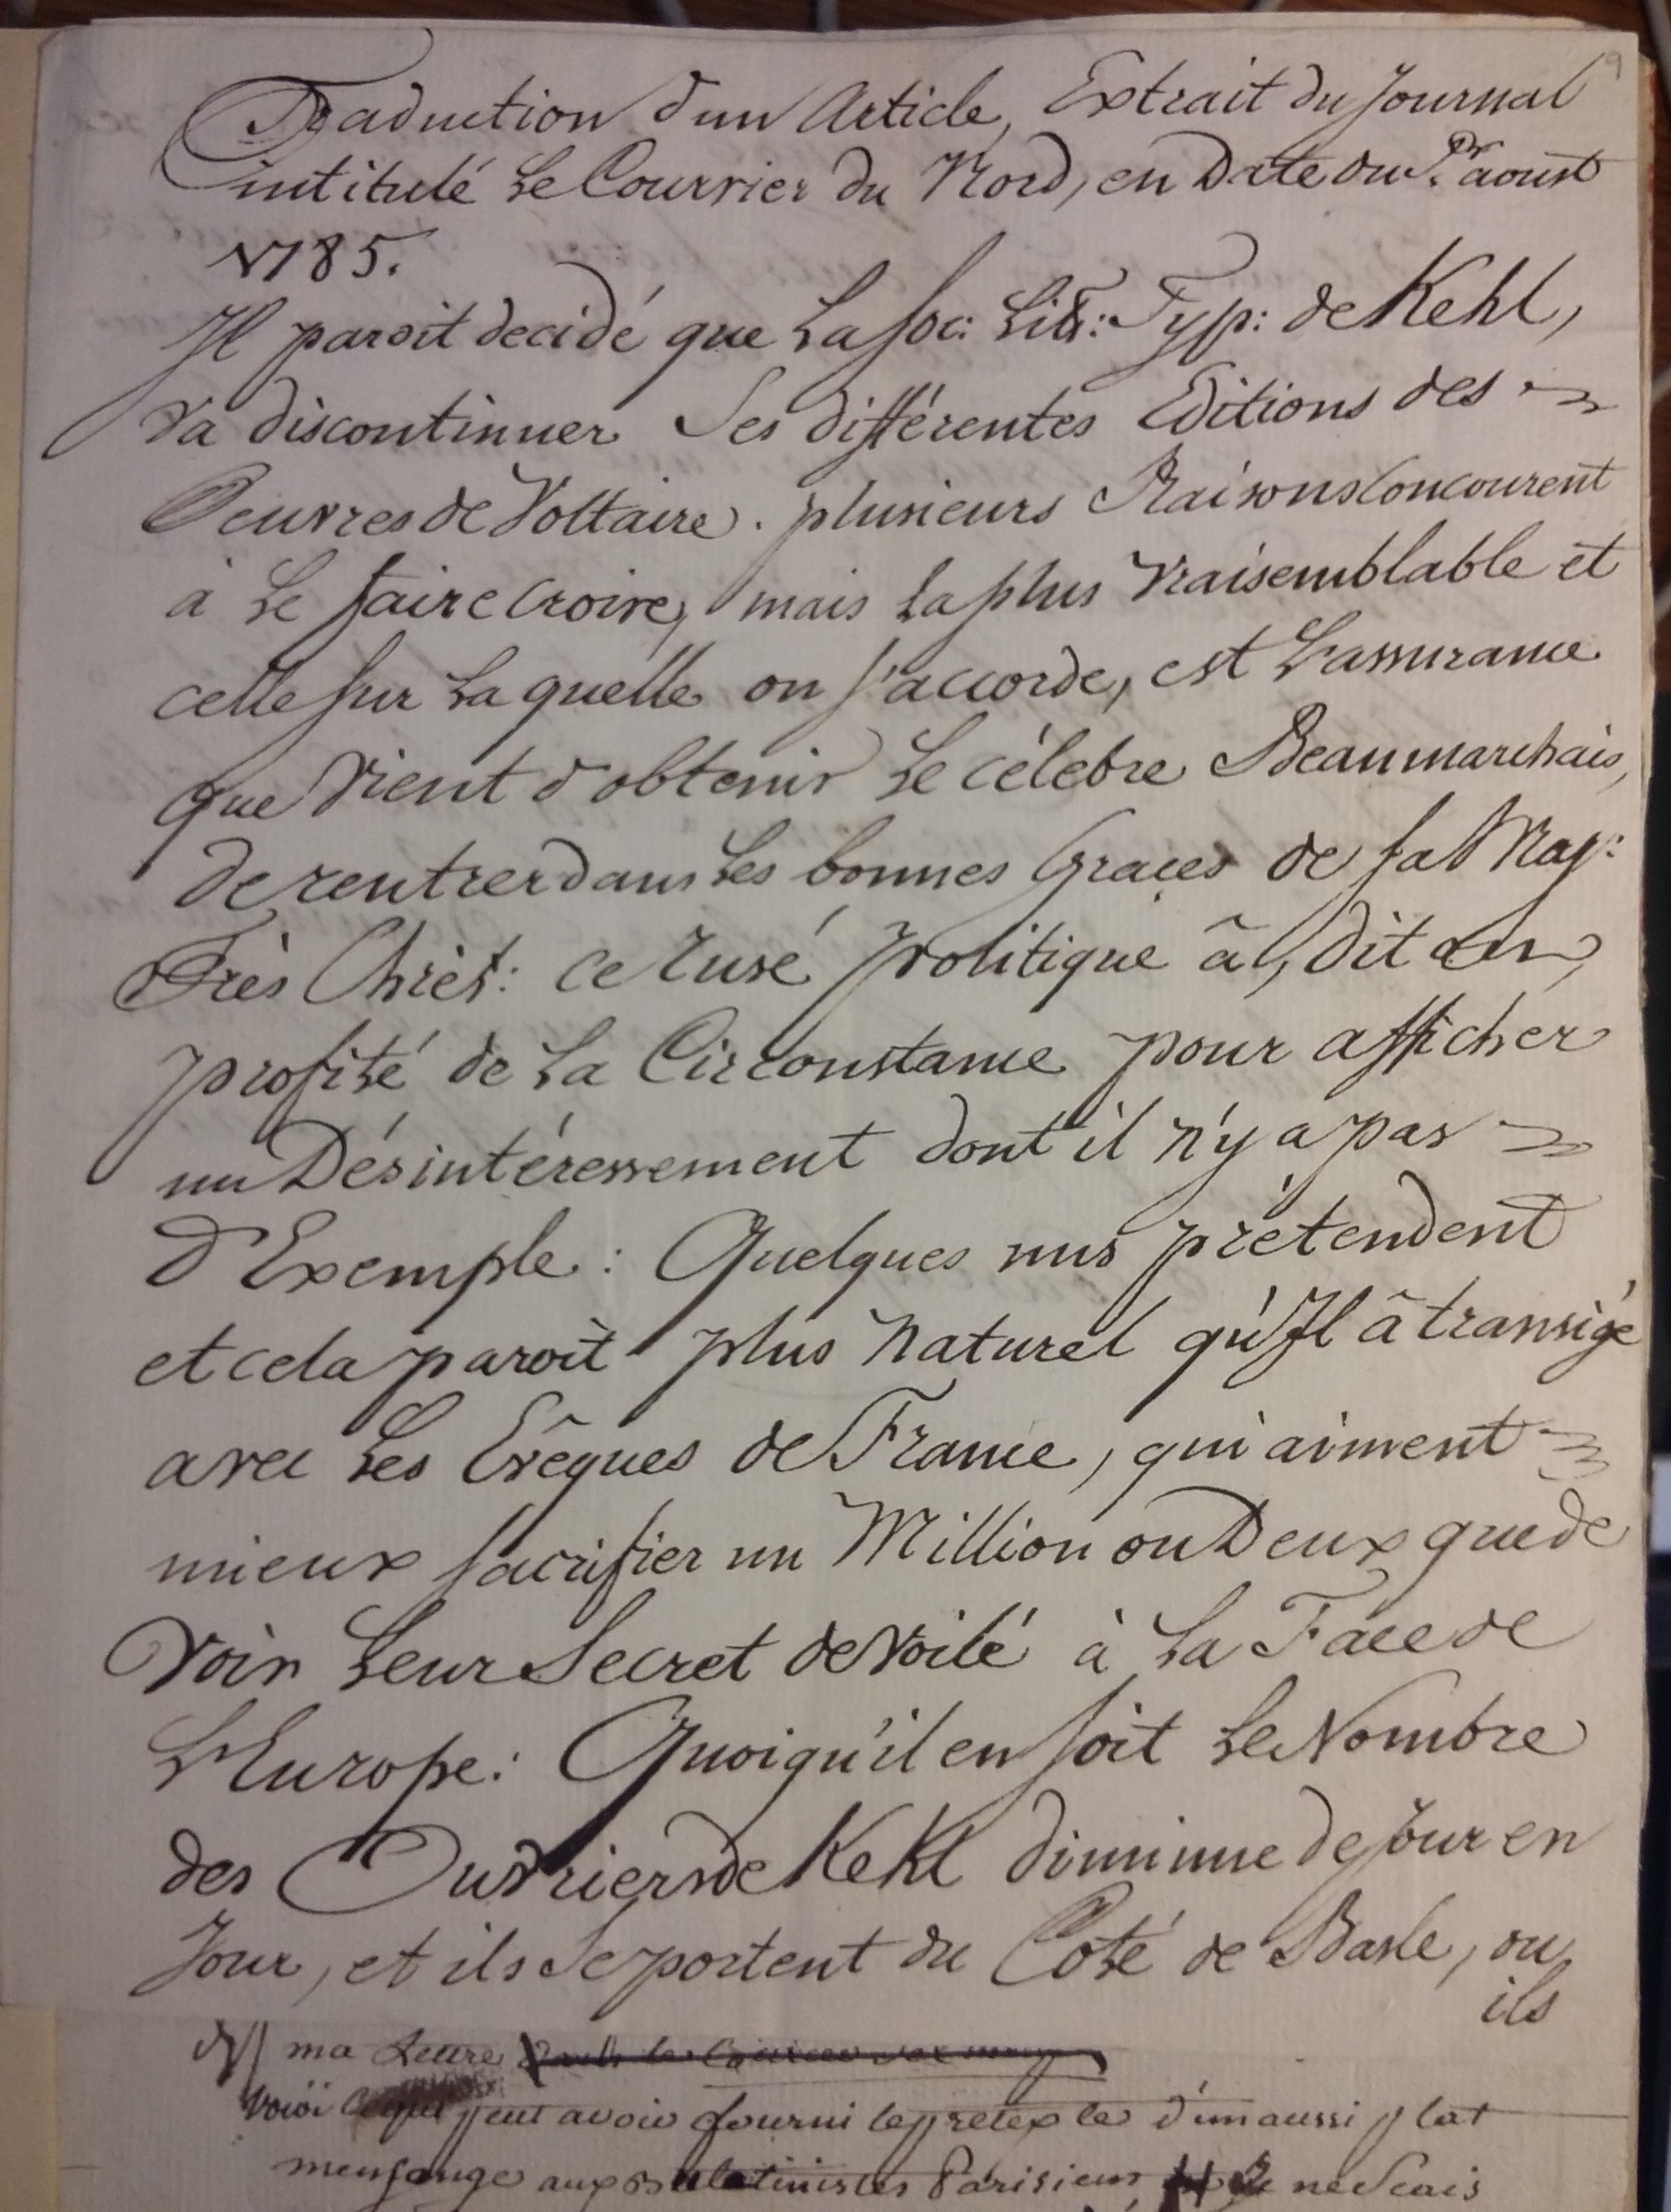 9
Traduction d'un Article, Extrait du Journal
intitulé Le Courrier du Nord, en Date du Pr. aoust
1785.
Il paroit decidé que La Soc: Litt: Typ: de Kehl,
va discontinuer Ses différentes Editions des
Oeuvres de Voltaire. plusieurs Raisons Concourent
à Le faire croire, mais La plus Vraisemblable et
celle sur La quelle on s'accorde, est L'assurance
que vient d'obtenir Le célebre Beaumarchais,
de rentrer dans Les bonnes Graces de sa Maj:
Très Chrét: ce rusé politique â, dit on,
profité de La Circonstance pour afficher
un Désintéressement dont il n'y a pas
D'Exemple: Quelques uns prétendent
et cela paroît plus naturel qu'Il â transigé
avec Les Evêques de France, qui aiment
mieux sacrifier un Million ou Deux que de
voir Leur Secret devoilé à La Face de
L'Europe: Quoiqu'il en soit Le Nombre
des Ouvriers de Kehl diminue de Jour en
Jour, et ils Se portent du Coté de Basle, ou
ils
ma Lettre
Voici Ce qui peut avoir fourni le pretexte d'un aussi plat
mensonge aux Bulletinistes Parisiens Je ne Scais